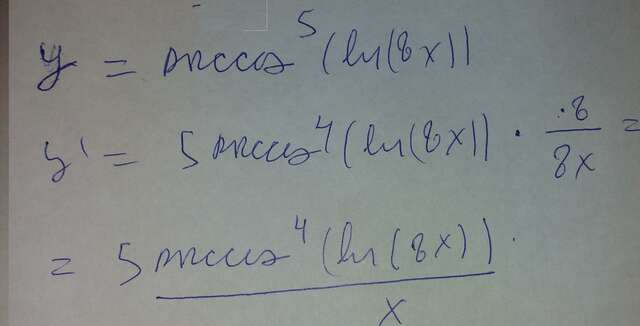 y = arccos⁵(ln(8x))
y' = 5 arccos⁴(ln(8x)) · ·8/8x =
= 5 arccos⁴(ln(8x)) · / x